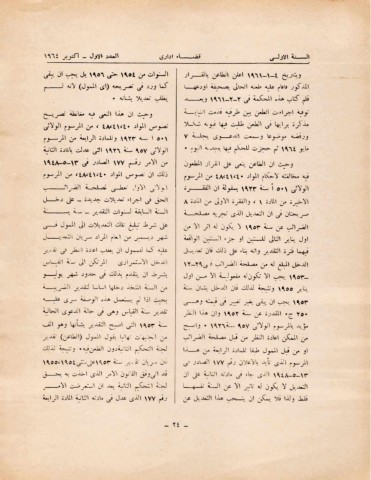 السنة الاولى قضاء ادارى العدد الاول - اكتوبر ١٩٦٤
وبتاريخ ٤-١-١٩٦١ اعلن الطاعن بالقرار
المذكور فاقام عليه طعنه الحالى بصحيفة اودعها
قلم كتاب هذه المحكمة فى ٢-٢-١٩٦١ وبعد
توفية اجراءات الطعن بين طرفيه قدمت النيابة
مذكرة برايها فى الطعن طلبت فيها قبوله شكلا
ورفضه موضوعا وسمعت الدعوى بجلسة ٧
مايو ١٩٦٤ ثم حجزت للحكم فيها بجلسة اليوم.
وحيث ان الطاعن ينعى على القرار المطعون
فيه مخالفته لاحكام المواد ٤٠/٤١/٤٨ من
المرسوم الولائى ٥٠١ أ سنة ١٩٢٣ بمقولة ان الفقرة
الاخيرة من المادة ١ والفقرة الاولى من المادة ٨
صريحتان فى ان التعديل الذى تجريه مصلحة
الضرائب عن سنة ١٩٥٣ لا يكون له اثر الا من
اول يناير التالى للسنتين او جزء السنتين الواقعة
فيهما فترة التقدير وانه بناء على ذلك فان تعديل
الدخل المبلغ له من مصلحة الضرائب فى ٢٩-١٢
-١٩٥٣ يجب الا يكون له مفعوله الا من اول
يناير ١٩٥٥ ونتيجة لذلك فان الدخل بشأن سنة
١٩٥٣ يجب ان يبقى بغير تغيير فى قيمته وهى
٢٥٠ ج. المقدرة عن سنة ١٩٥٢ وان هذا النظر
مؤيد بالمرسوم الولائى ٩٥٧ سنة ١٩٣٦ - وانه
من الممكن اعادة النظر من قبل مصلحة الضرائب
او من قبل الممول طبقا للمادة الرابعة من هذا
المرسوم الذى تأيد بالاعلان رقم ١٧٧ الصادر فى
١٣-٥-١٩٤٨ الذى جاء فى مادته الثانية على ان
التعديل لا يكون له تاثير الا عن السنة نفسها
فقط ولذا فلا يمكن ان ينسحب هذا التعديل عن
السنوات من ١٩٥٤ حتى ١٩٥٦ بل يجب ان يبقى
كما ورد فى تصريحه (اى الممول) لانه لم
يطلب تعديلا بشانه.
وحيث ان هذا النعى فيه مغالطة لصريح
نصوص المواد ٤٠/٤١/٤٨ من المرسوم الولائى
٥٠١ أ سنة ١٩٢٣ والمادة الرابعة من المرسوم
الولائى ٩٥٧ سنة ١٩٣٦ التى عدلت بالمادة الثانية
من الامر رقم ١٧٧ الصادر فى ١٣-٥-١٩٤٨
ذلك ان نصوص المواد ٤٠/٤١/٤٨ من المرسوم
الولائى الاول تعطى لمصلحة الضرائب
الحق فى اجراء تعديلات جديدة - على دخل
السنة السابقة لسنوات التقدير - سنة بسنة
على شرط تبليغ تلك التعديلات الى الممول فى
شهر ديسمبر من العام المراد سريان التعديل
عليه كما تسول له ان يعيد النظر فى قيمة
الدخل الاستمرارى المرتكن الى سنة القياس
بشرط ان يتقدم بذلك فى حدود شهر يوليو
من السنة المتخذ دخلها اساسا لتقدير الضريبة
بحيث اذا لم يستعمل هذه الوصفة سرى عليه
تقدير سنة القياس وهى فى حالة الدعوى الحالية
سنة ١٩٥٣ التى اصبح التقدير بشأنها وهو الف
من الجنيهات نهائيا بقبول الطاعن (لتقدير
لجنة التحكيم الثانية دون الطعن فيه) ونتيجة لذلك
ان سريان تقدير سنة ١٩٥٣ على سنتى ١٩٥٤-١٩٥٥
قد الى وفق القانون الامر الذى اخذت به بحق
لجنة التحكيم الثانية بعد ان استعرضت الامر
رقم ١٧٧ الذى عدل فى مادته الثانية المادة الرابعة
- ٢٤ -